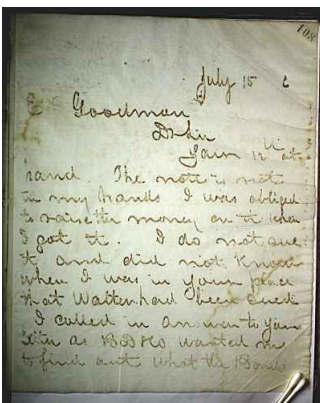 108
July 15 6
E Goodman
D Sir
Yours 12 at
hand The note is not
in my hands I was obliged
to raise the money on it when
I got it. I do not own
it and did not know
when I was in your place
that Waiten had been sued
I called in answer to your
as wanted me
to find out what the Bonds